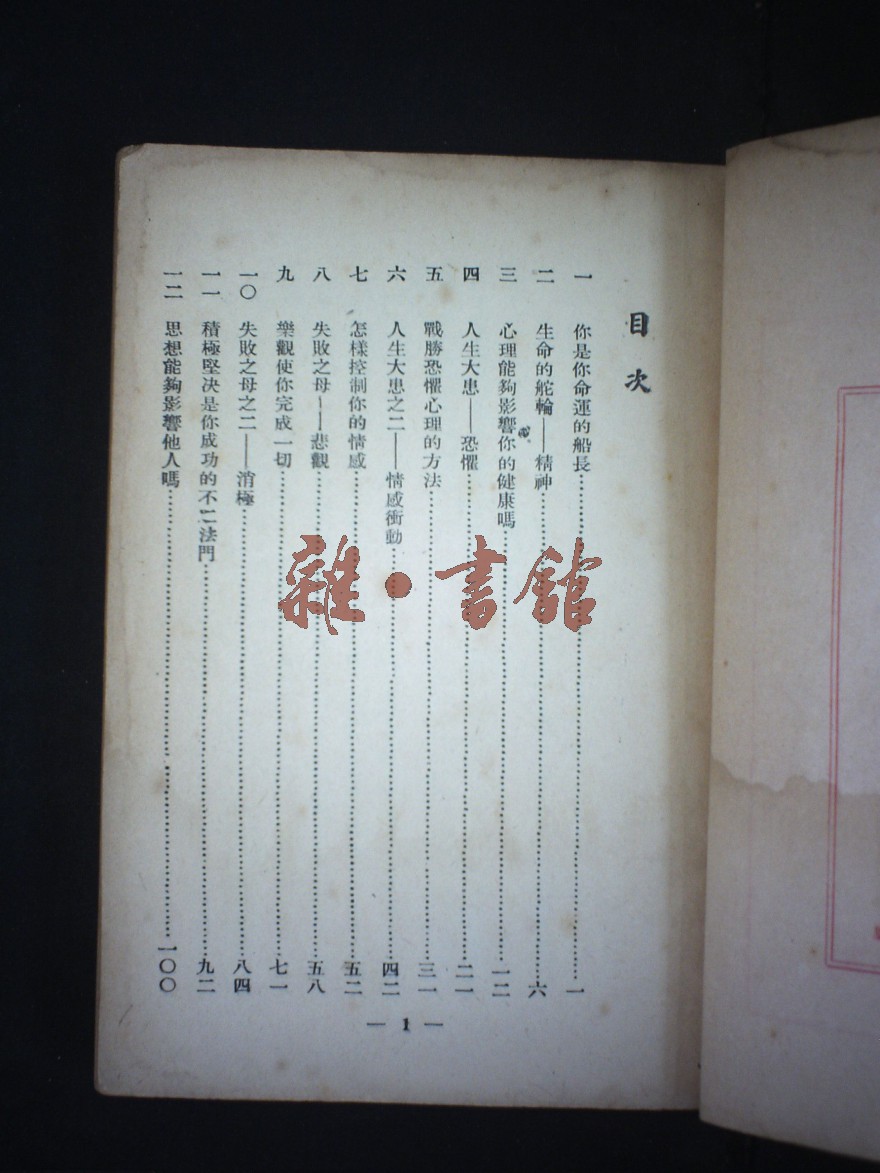 目次
一 你是你命運的船長……一
二 生命的舵輪——精神……六
三 心理能夠影響你的健康嗎……一二
四 人生大患——恐懼……二一
五 戰勝恐懼心理的方法……三一
六 人生大患之二——情感衝動……四二
七 怎樣控制你的情感……五二
八 失敗之母——悲觀……五八
九 樂觀使你完成一切……七一
一〇 失敗之母之二——消極……八四
一一 積極堅決是你成功的不二法門……九二
一二 思想能夠影響他人嗎……一〇〇
— 1 —
雜·書館